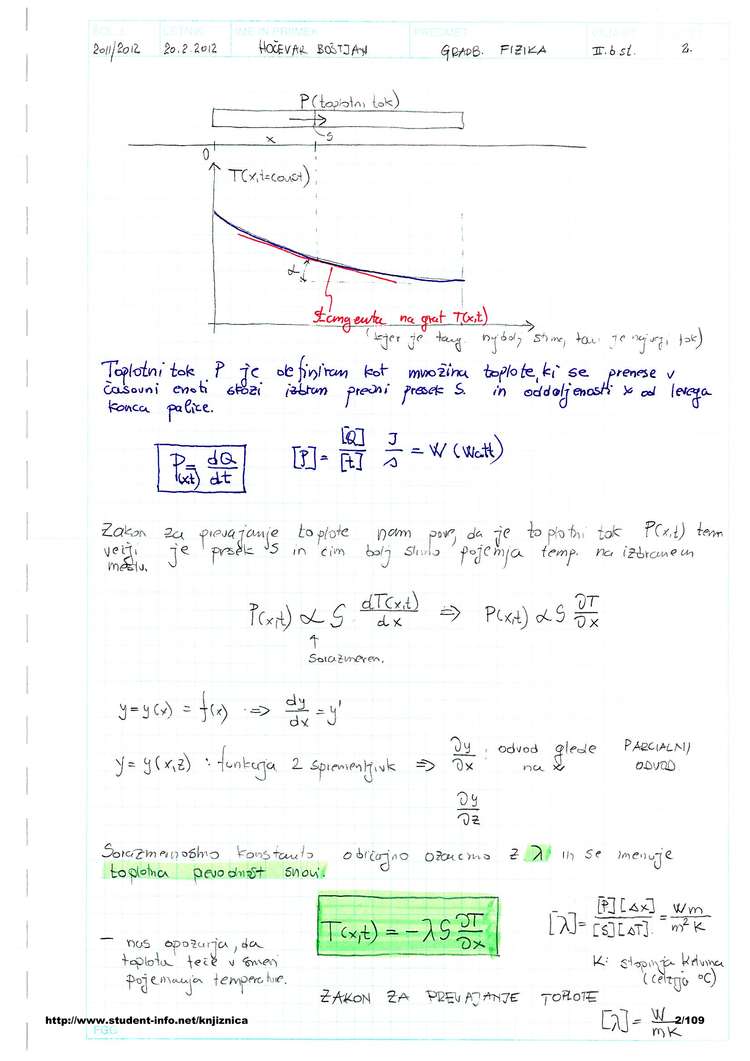 2011/2012 20.2.2012 HOČEVAR BOŠTJAN GRADB. FIZIKA II. b st. 2.
P (toplotni tok)
x S
0
T(x,t=const)
α
tangenta na graf T(x,t)
(kjer je tang. najbolj strma, tam je največji tok)
Toplotni tok P je definiran kot množina toplote, ki se prenese v
časovni enoti skozi izbran prečni presek S. in oddaljenosti x od levega
konca palice.
P(x,t) = dQ/dt [P] = [Q]/[t] J/s = W (Watt)
Zakon za prevajanje toplote nam pove, da je toplotni tok P(x,t) tem
večji je presek S in čim bolj strmo pojemja temp. na izbranem
mestu.
P(x,t) ∝ S dT(x,t)/dx ⇒ P(x,t) ∝ S ∂T/∂x
↑
Sorazmeren.
y = y(x) = f(x) ⇒ dy/dx = y'
y = y(x,z) : funkcija 2 spremenljivk ⇒ ∂y/∂x : odvod glede na x PARCIALNI ODVOD
∂y/∂z
Sorazmernostno konstanto običajno označimo z λ in se imenuje
toplotna prevodnost snovi.
T(x,t) = -λ S ∂T/∂x
[λ] = [P][Δx]/[S][ΔT] = W m/m² K
– nas opozarja, da
toplota teče v smeri
pojemanja temperature.
K: stopinja Kelvina
(celzijo °C)
ZAKON ZA PREVAJANJE TOPLOTE
[λ] = W/mK
http://www.student-info.net/knjiznica 2/109
FGG